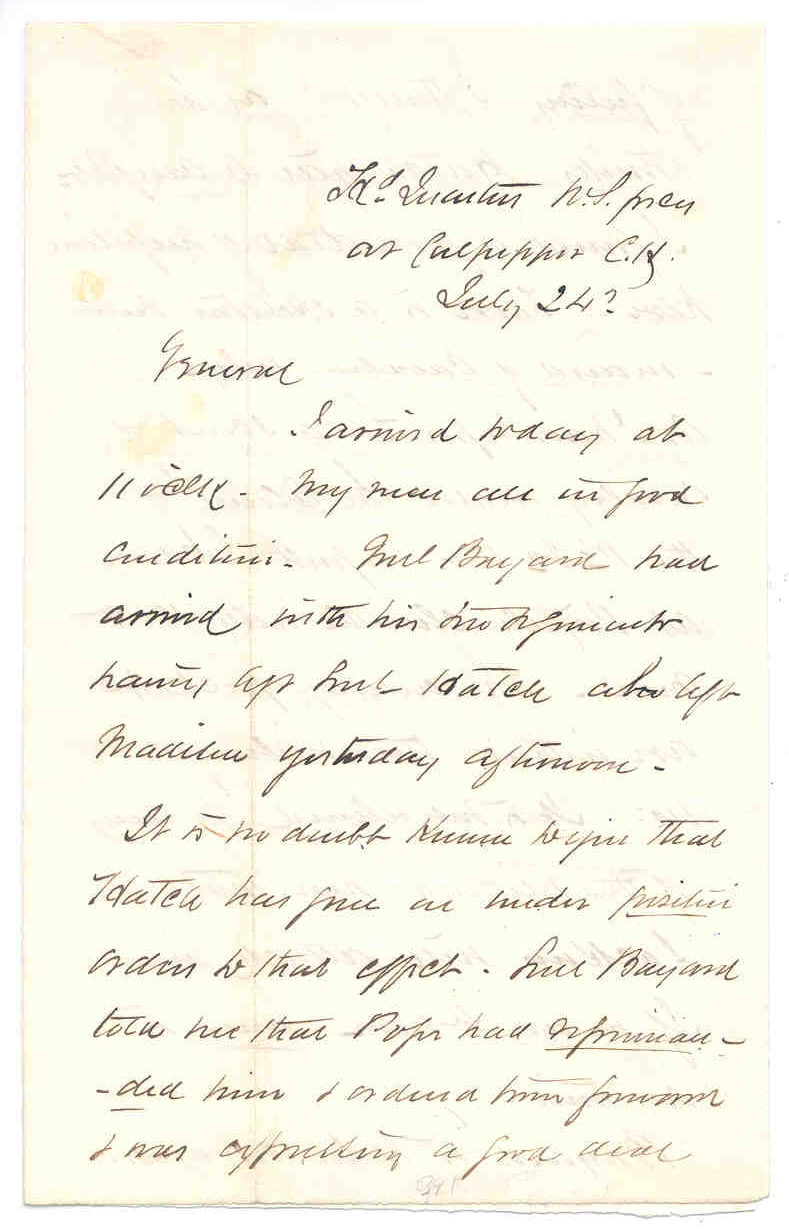 Hd. Quarters U.S. forces
at Culpepper C.H.
July 24?
General
I arrived today at
11 oclk - My men all in good
condition - Genl Bayard had
arrived with his two regiments
having left Genl Hatch who left
Madison yesterday afternoon -
It is no doubt known to you that
Hatch has gone on under positive
orders to that effect - Genl Bayard
told me that Pope had repriman-
-ded him & ordered him forward
& was expressing a good deal